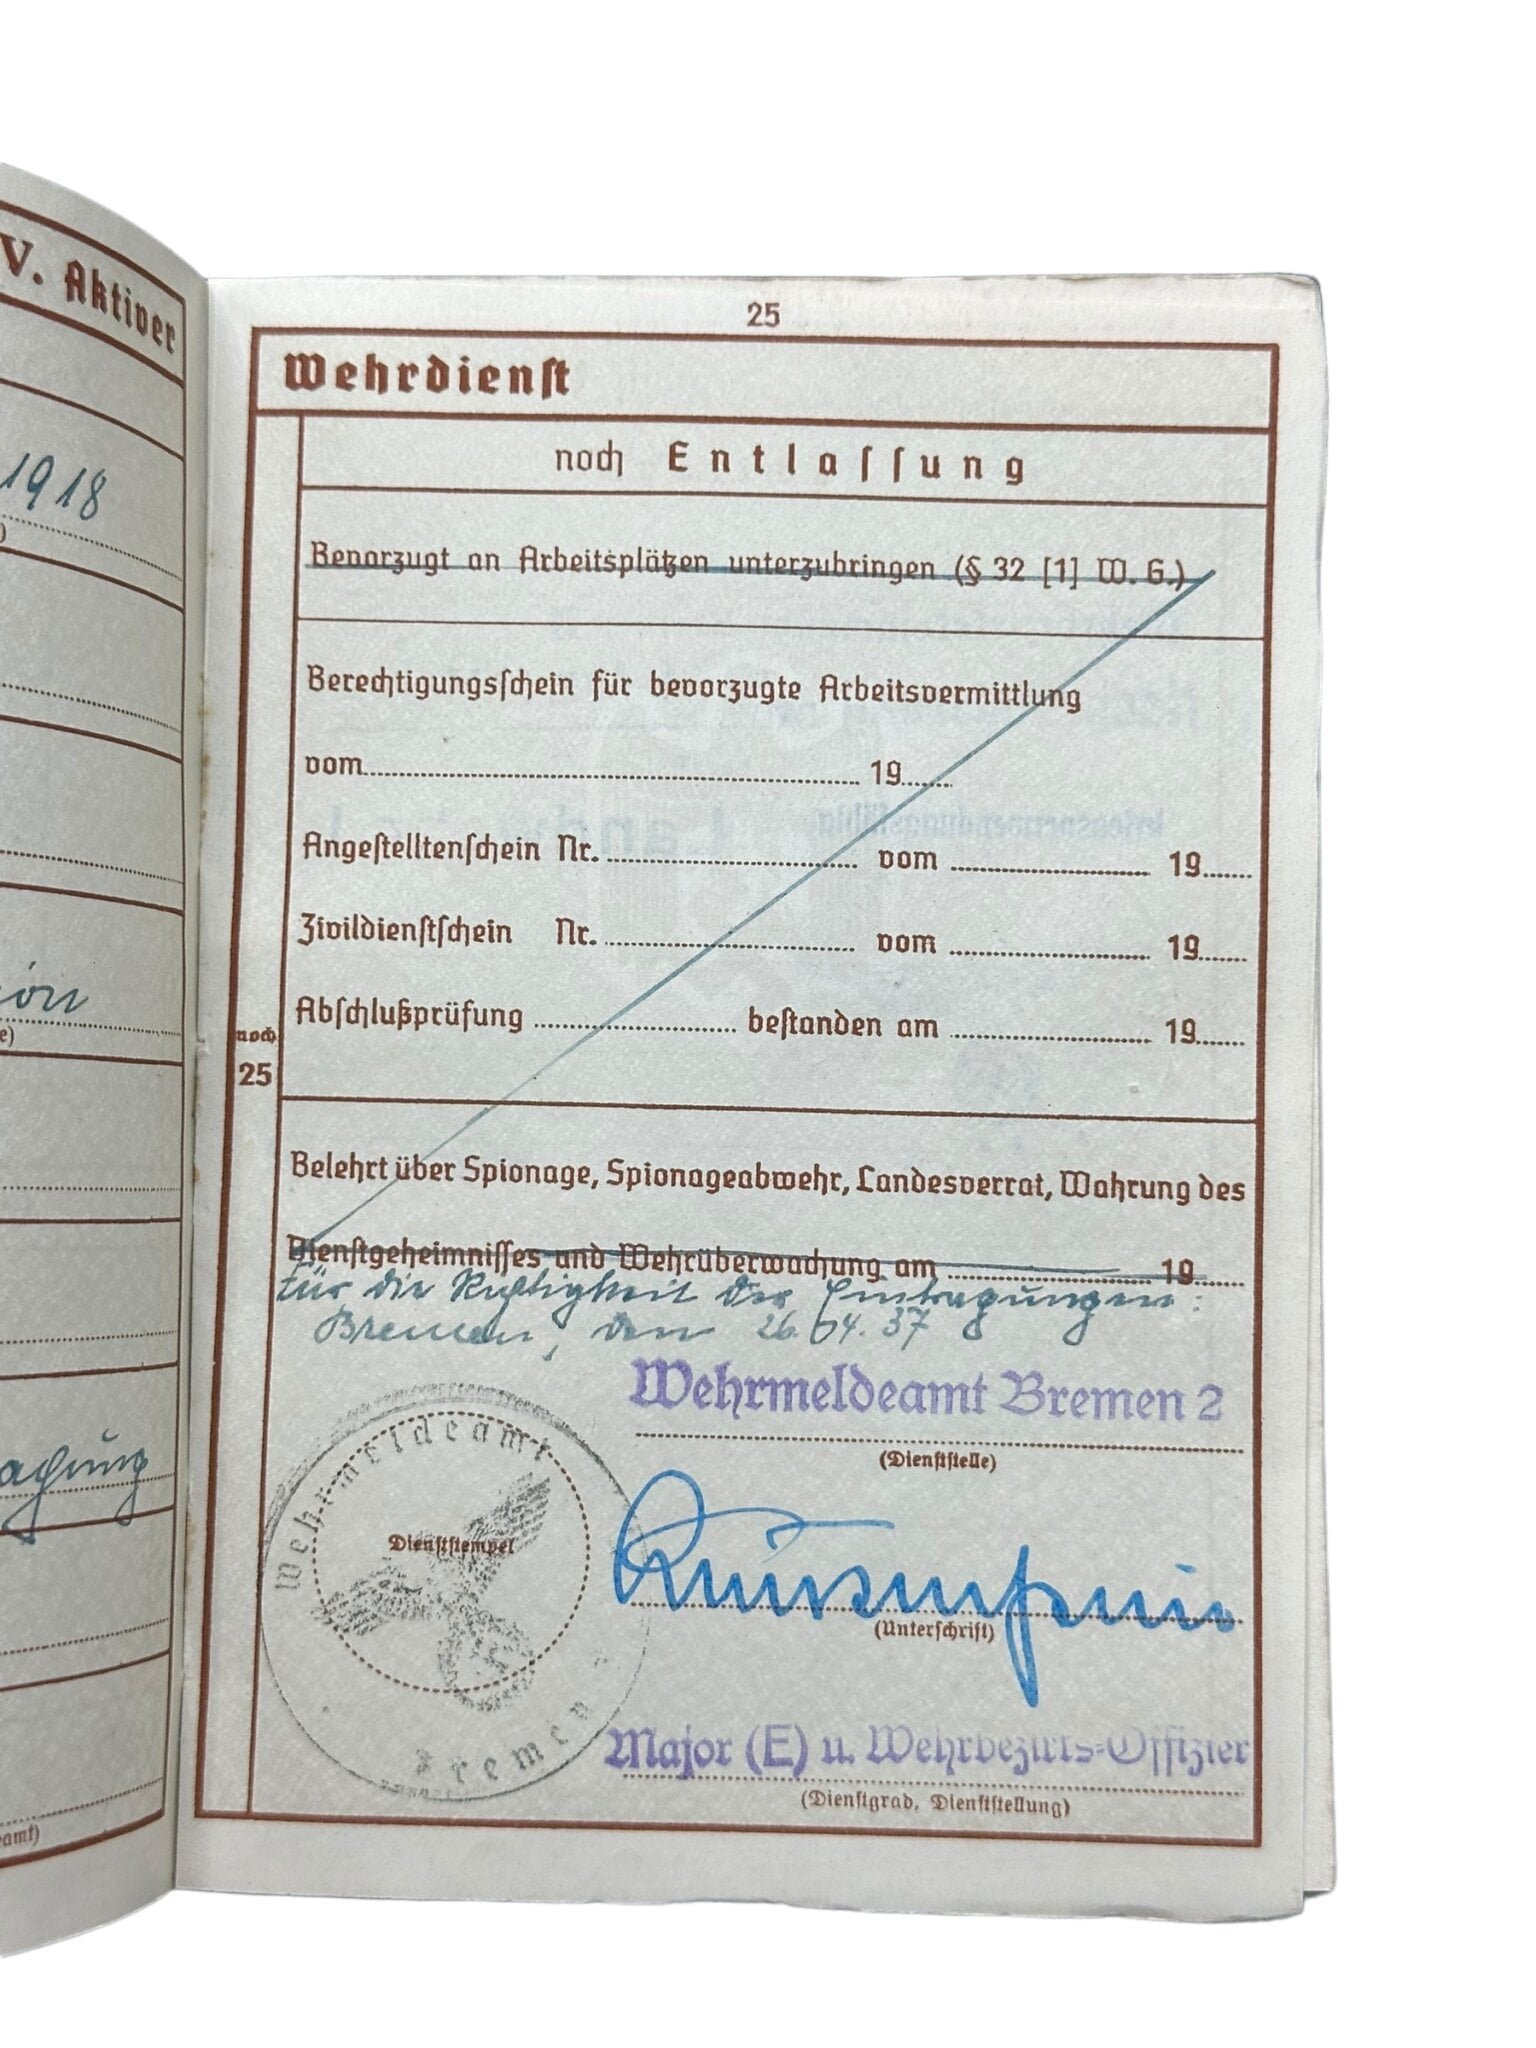 V. Aktiver
1918
)
e)
amt)
25
Wehrdienſt
noch Entlaſſung
Bevorzugt an Arbeitsplätzen unterzubringen (§ 32 [1] W. G.)
Berechtigungsſchein für bevorzugte Arbeitsvermittlung
vom 19
Angeſtelltenſchein Nr. vom 19
Zivildienſtſchein Nr. vom 19
Abſchlußprüfung beſtanden am 19
noch
25
Belehrt über Spionage, Spionageabwehr, Landesverrat, Wahrung des
Dienſtgeheimniſſes und Wehrüberwachung am 19
Für die Richtigkeit der Eintragungen:
Bremen, den 26.04.37
Wehrmeldeamt Bremen 2
(Dienſtſtelle)
Wehrmeldeamt
Dienſtſtempel
Bremen
(Unterſchrift)
Major (E) u. Wehrbezirks-Offizier
(Dienſtgrad, Dienſtſtellung)